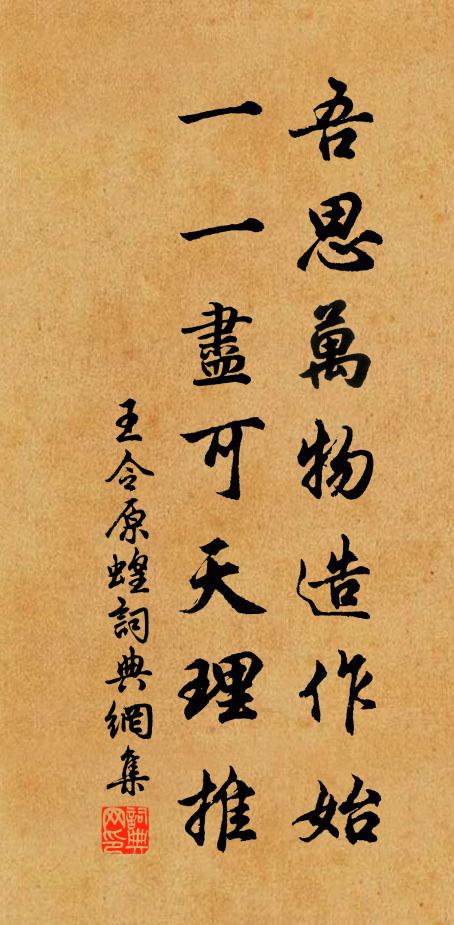 吾思萬物造作始
一一盡可天理推
王令原蝗詞典網集
詞典网印